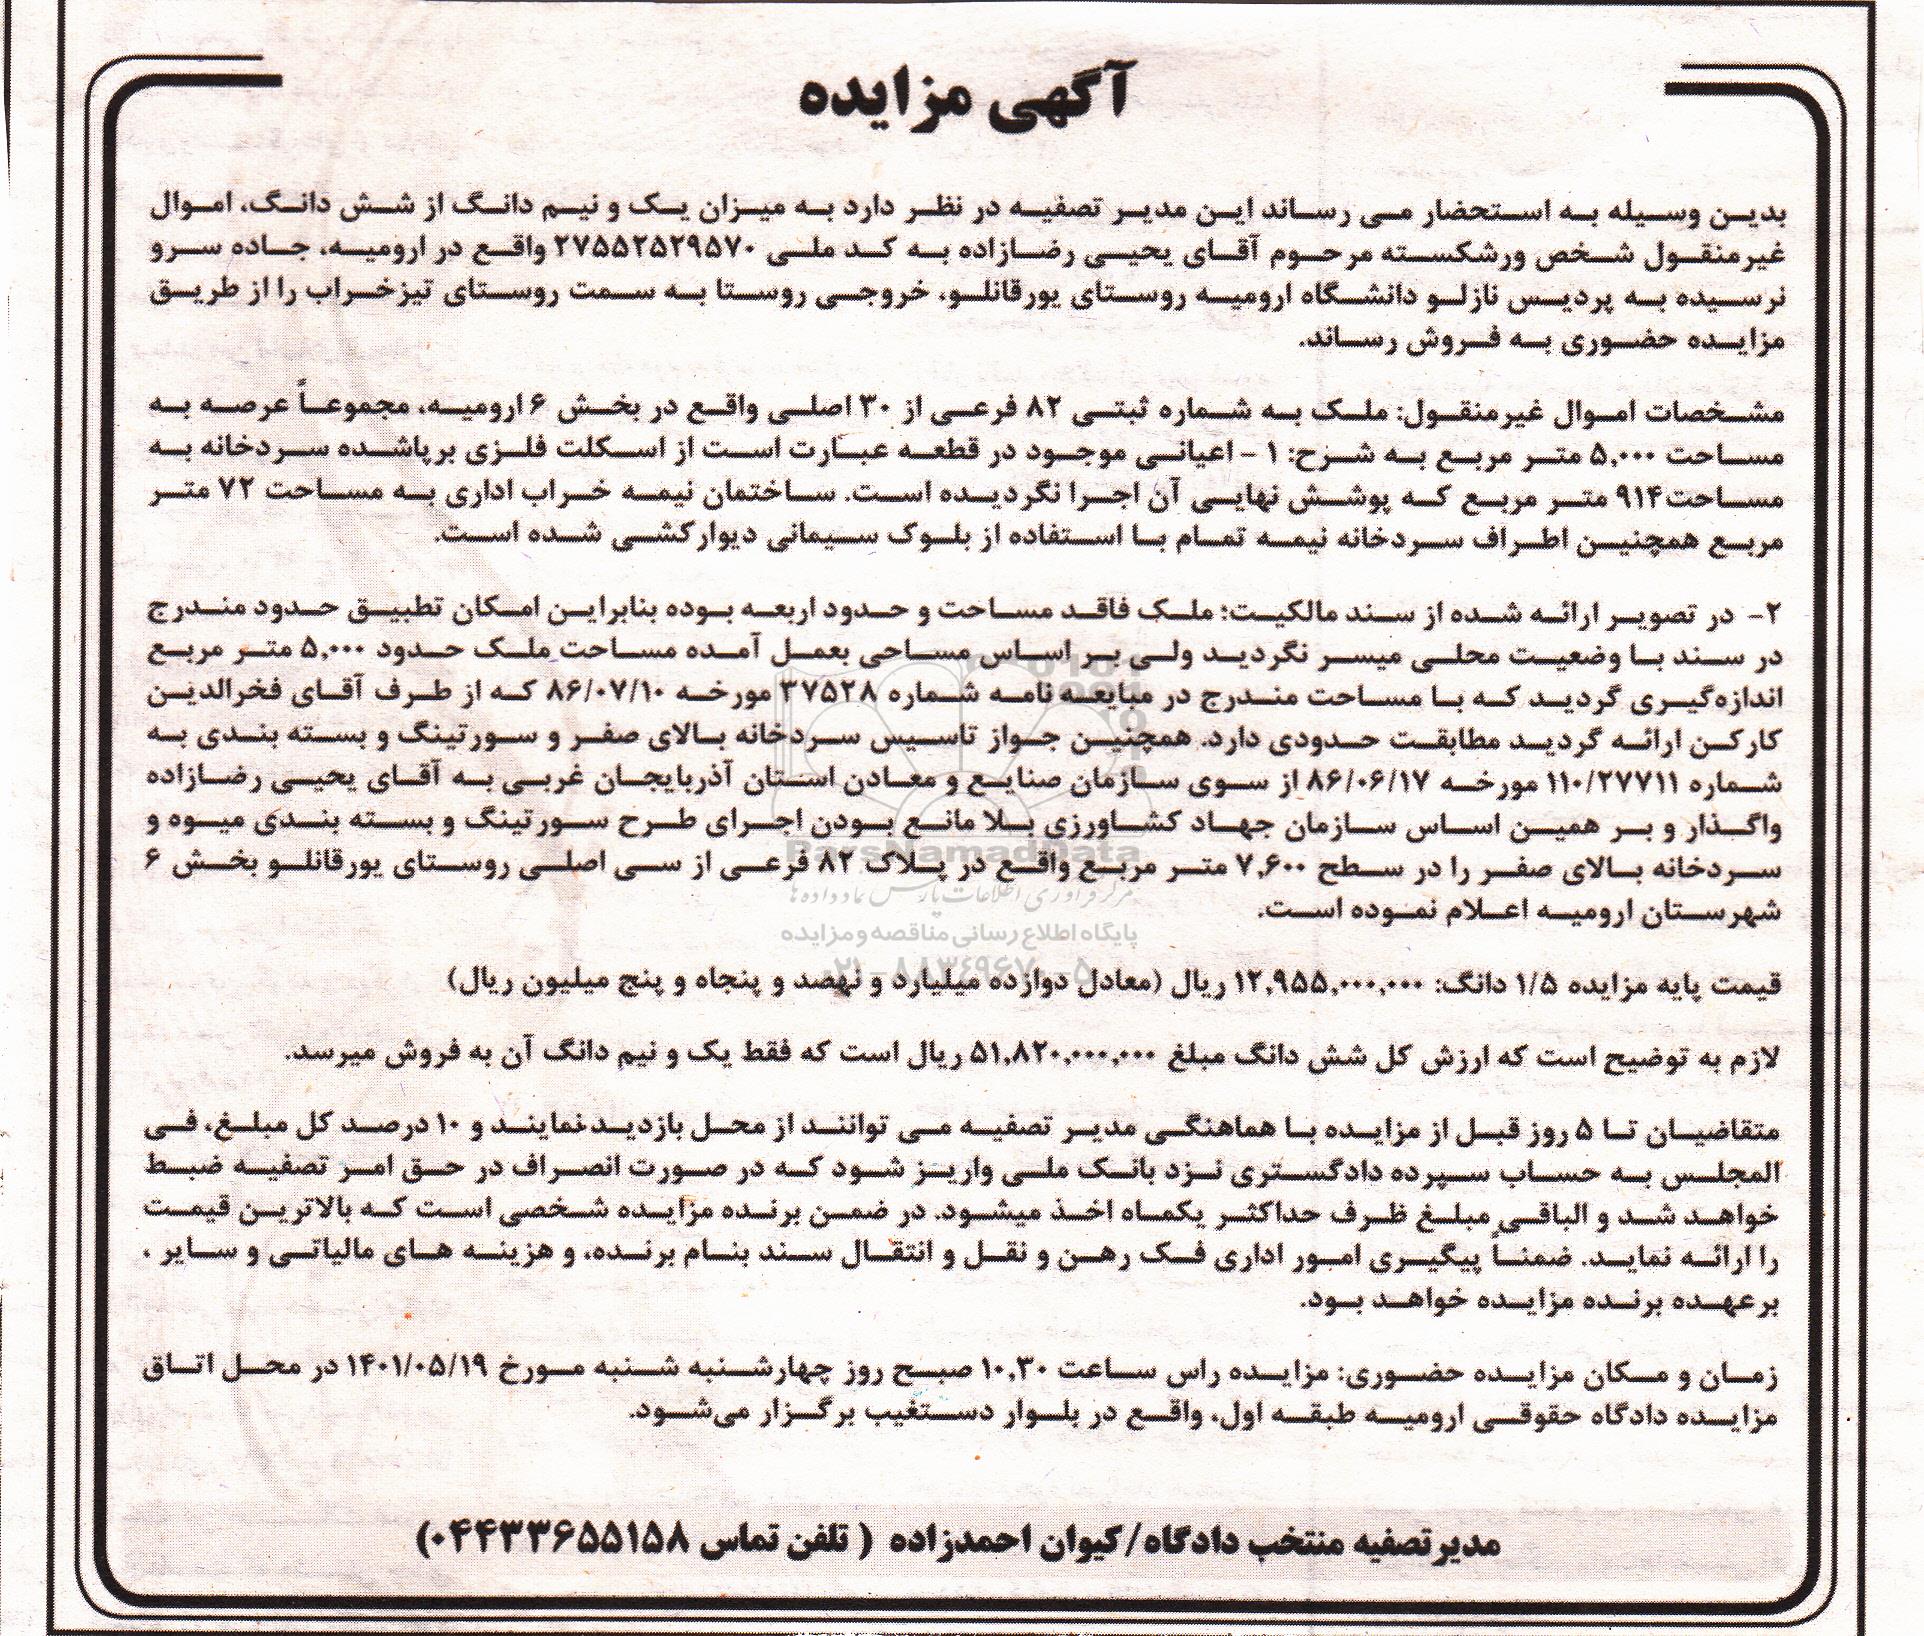 آگهی مزایده
بدین وسیله به استحضار می رساند این مدیر تصفیه در نظر دارد به میزان یک و نیم دانگ از شش دانگ، اموال
غیرمنقول شخص ورشکسته مرحوم آقای یحیی رضازاده به کد ملی ۲۷۵۵۲۵۲۹۵۷۰ واقع در ارومیه، جاده سرو
نرسیده به پردیس نازلو دانشگاه ارومیه روستای یورقانلو، خروجی روستا به سمت روستای تیزخراب را از طریق
مزایده حضوری به فروش رساند.
مشخصات اموال غیرمنقول: ملک به شماره ثبتی ۸۲ فرعی از ۳۰ اصلی واقع در بخش ۶ ارومیه، مجموعاً عرصه به
مساحت ۵,۰۰۰ متر مربع به شرح: ۱ - اعیانی موجود در قطعه عبارت است از اسکلت فلزی برپاشده سردخانه به
مساحت۹۱۴ متر مربع که پوشش نهایی آن اجرا نگردیده است. ساختمان نیمه خراب اداری به مساحت ۷۲ متر
مربع همچنین اطراف سردخانه نیمه تمام با استفاده از بلوک سیمانی دیوارکشی شده است.
۲- در تصویر ارائه شده از سند مالکیت؛ ملک فاقد مساحت و حدود اربعه بوده بنابراین امکان تطبیق حدود مندرج
در سند با وضعیت محلی میسر نگردید ولی بر اساس مساحی بعمل آمده مساحت ملک حدود ۵,۰۰۰ متر مربع
اندازه‌گیری گردید که با مساحت مندرج در مبایعه نامه شماره ۳۷۵۲۸ مورخه ۸۶/۰۷/۱۰ که از طرف آقای فخرالدین
کارکن ارائه گردید مطابقت حدودی دارد. همچنین جواز تاسیس سردخانه بالای صفر و سورتینگ و بسته بندی به
شماره ۱۱۰/۲۷۷۱۱ مورخه ۸۶/۰۶/۱۷ از سوی سازمان صنایع و معادن استان آذربایجان غربی به آقای یحیی رضازاده
واگذار و بر همین اساس سازمان جهاد کشاورزی بلا مانع بودن اجرای طرح سورتینگ و بسته بندی میوه و
ParsNamadData
سردخانه بالای صفر را در سطح ۷,۶۰۰ متر مربع واقع در پلاک ۸۲ فرعی از سی اصلی روستای یورقانلو بخش ۶
مرکز فرآوری اطلاعات پارس نماد داده ها
شهرستان ارومیه اعلام نموده است.
پایگاه اطلاع رسانی مناقصه و مزایده
۰۲۱-۸۸۳۴۹۶۷۰-۵
قیمت پایه مزایده ۱/۵ دانگ: ۱۲,۹۵۵,۰۰۰,۰۰۰ ریال (معادل دوازده میلیارد و نهصد و پنجاه و پنج میلیون ریال)
لازم به توضیح است که ارزش کل شش دانگ مبلغ ۵۱,۸۲۰,۰۰۰,۰۰۰ ریال است که فقط یک و نیم دانگ آن به فروش میرسد.
متقاضیان تا ۵ روز قبل از مزایده با هماهنگی مدیر تصفیه می توانند از محل بازدید نمایند و ۱۰ درصد کل مبلغ، فی
المجلس به حساب سپرده دادگستری نزد بانک ملی واریز شود که در صورت انصراف در حق امر تصفیه ضبط
خواهد شد و الباقی مبلغ ظرف حداکثر یکماه اخذ میشود. در ضمن برنده مزایده شخصی است که بالاترین قیمت
را ارائه نماید. ضمناً پیگیری امور اداری فک رهن و نقل و انتقال سند بنام برنده، و هزینه های مالیاتی و سایر ،
برعهده برنده مزایده خواهد بود.
زمان و مکان مزایده حضوری: مزایده راس ساعت ۱۰,۳۰ صبح روز چهارشنبه شنبه مورخ ۱۴۰۱/۰۵/۱۹ در محل اتاق
مزایده دادگاه حقوقی ارومیه طبقه اول، واقع در بلوار دستغیب برگزار می‌شود.
مدیرتصفیه منتخب دادگاه/کیوان احمدزاده ( تلفن تماس ۰۴۴۳۳۶۵۵۱۵۸)